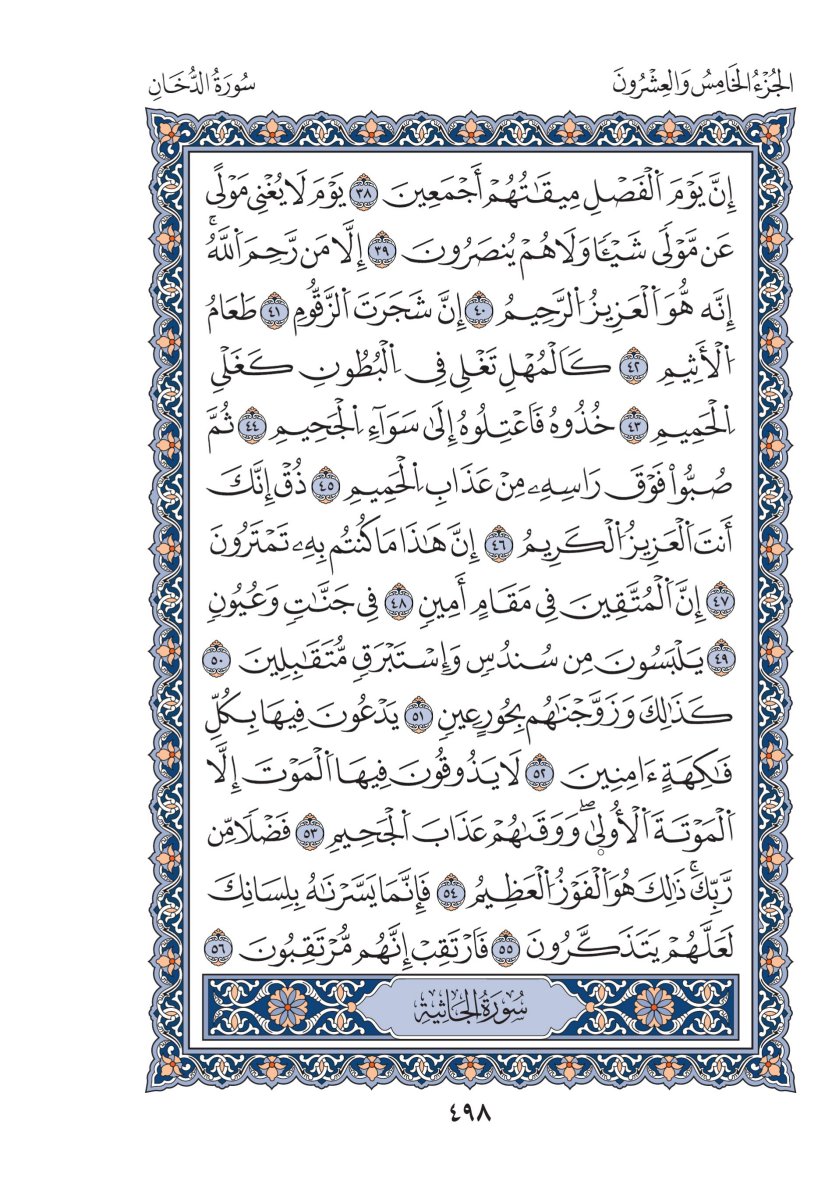 الجُزْءُ الخَامِسُ وَالعِشْرُونَ
سُورَةُ الدُّخَانِ
إِنَّ يَوْمَ اَ۬لْفَصْلِ مِيقَٰتُهُمْ أَجْمَعِينَ ٣٨ يَوْمَ لَا يُغْنِي مَوْلًى
عَن مَّوْلًى شَيْـًٔا وَلَا هُمْ يُنصَرُونَ ٣٩ إِلَّا مَن رَّحِمَ اَ۬للَّهُۚ
إِنَّه هُّوَ اَ۬لْعَزِيزُ اُ۬لرَّحِيمُ ٤٠ إِنَّ شَجَرَتَ اَ۬لزَّقُّومِ ٤١ طَعَامُ
اُ۬لْأَثِيمِ ٤٢ كَالْمُهْلِ تَغْلِي فِي اِ۬لْبُطُونِ كَغَلْيِ
اِ۬لْحَمِيمِ ٤٣ خُذُوهُ فَاعْتِلُوهُ إِلَىٰ سَوَآءِ اِ۬لْجَحِيمِ ٤٤ ثُمَّ
صُبُّواْ فَوْقَ رَاسِهِۦ مِنْ عَذَابِ اِ۬لْحَمِيمِ ٤٥ ذُقْ إِنَّكَ
أَنتَ اَ۬لْعَزِيزُ اُ۬لْكَرِيمُ ٤٦ إِنَّ هَٰذَا مَا كُنتُم بِهِۦ تَمْتَرُونَ
٤٧ إِنَّ اَ۬لْمُتَّقِينَ فِي مَقَامٍ أَمِينٖ ٤٨ فِي جَنَّٰتٖ وَعُيُونٖ
٤٩ يَلْبَسُونَ مِن سُندُسٖ وَإِسْتَبْرَقٖ مُّتَقَٰبِلِينَ ٥٠
كَذَٰلِكَ وَزَوَّجْنَٰهُم بِحُورٍ عِينٖ ٥١ يَدْعُونَ فِيهَا بِكُلِّ
فَٰكِهَةٍ ءَامِنِينَ ٥٢ لَا يَذُوقُونَ فِيهَا اَ۬لْمَوْتَ إِلَّا
اَ۬لْمَوْتَةَ اَ۬لْأُولَىٰۖ وَوَقَىٰهُمْ عَذَابَ اَ۬لْجَحِيمِ ٥٣ فَضْلٗا مِّن
رَّبِّكَۚ ذَٰلِكَ هُوَ اَ۬لْفَوْزُ اُ۬لْعَظِيمُ ٥٤ فَإِنَّمَا يَسَّرْنَٰهُ بِلِسَانِكَ
لَعَلَّهُمْ يَتَذَكَّرُونَ ٥٥ فَارْتَقِبْ إِنَّهُم مُّرْتَقِبُونَ ٥٦
سُورَةُ الجَاثِيَةِ
٤٩٨